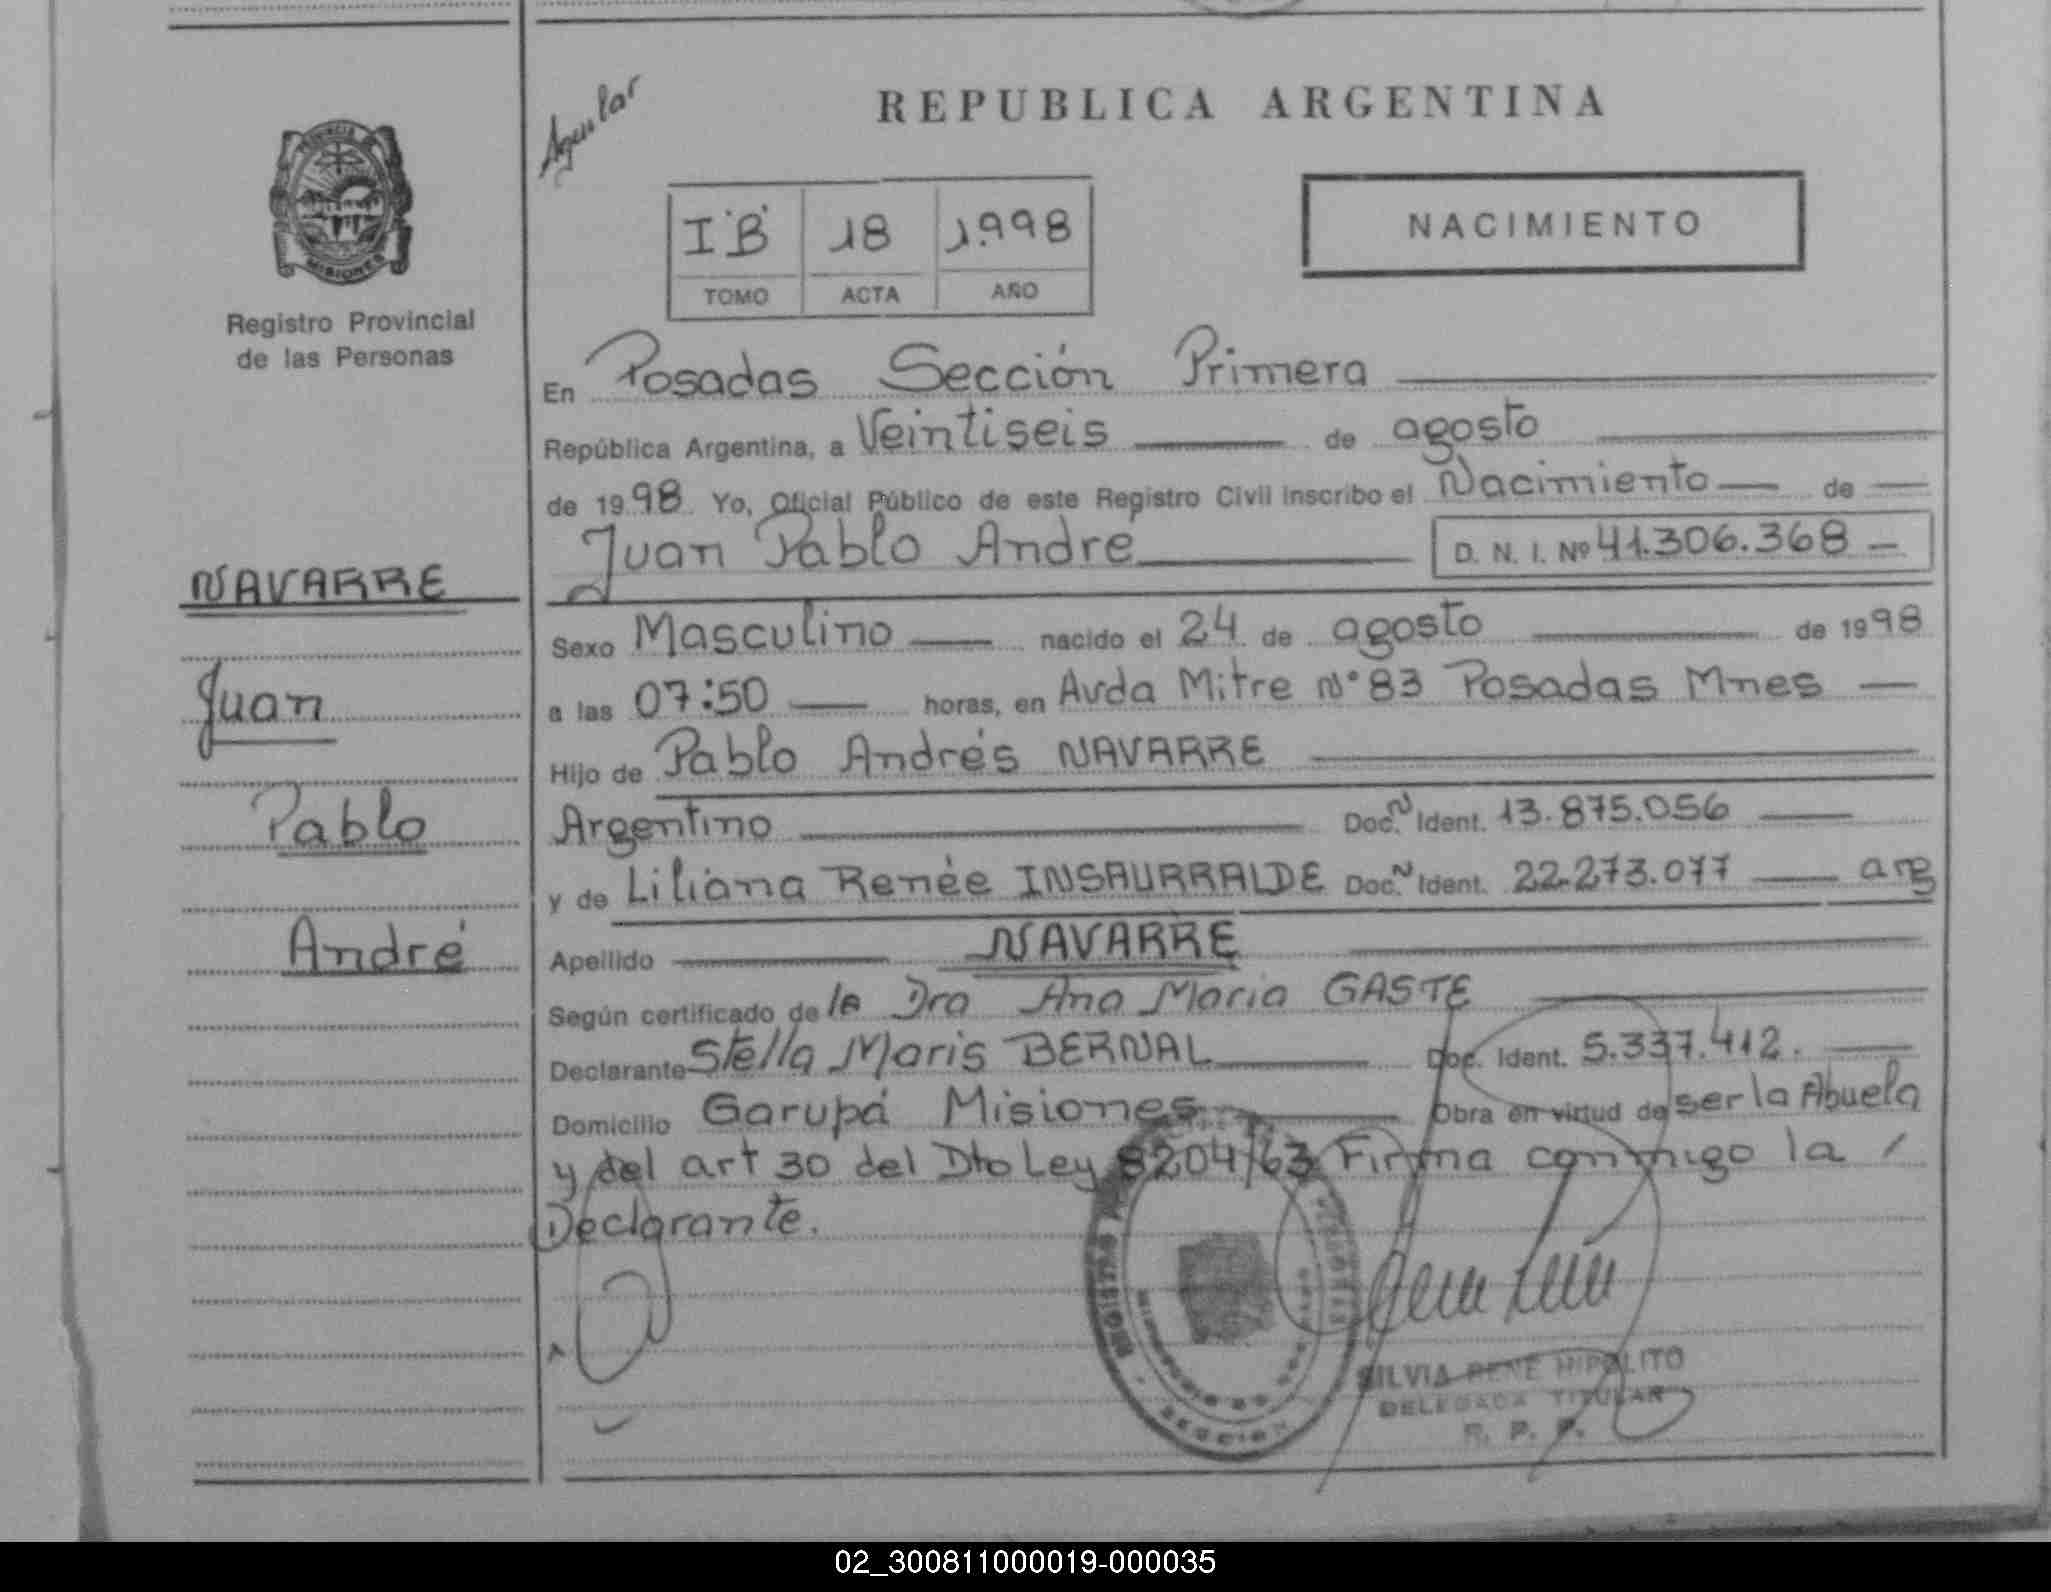 Agular
REPUBLICA ARGENTINA
PROVINCIA DE
MISIONES
Registro Provincial
de las Personas
I "B" 18 1.998
TOMO ACTA AÑO
NACIMIENTO
En Posadas Sección Primera
República Argentina, a Veintiseis de agosto
de 1998 Yo, Oficial Público de este Registro Civil inscribo el Nacimiento de
Juan Pablo André D. N. I. Nº 41.306.368
NAVARRE
Sexo Masculino nacido el 24 de agosto de 1998
Juan
a las 07:50 horas, en Avda Mitre Nº 83 Posadas Mnes
Hijo de Pablo Andrés NAVARRE
Pablo
Argentino Doc. N Ident. 13.875.056
y de Liliana Renée INSAURRALDE Doc. N Ident. 22.273.077 arg
André
Apellido NAVARRE
Según certificado de la Dra Ana Maria GASTE
Declarante Stella Maris BERNAL Doc. Ident. 5.337.412.
Domicilio Garupá Misiones Obra en virtud de ser la Abuela
y del art 30 del Dto Ley 8204/63 Firma conmigo la /
Declarante.
SILVIA RENE HIPOLITO
DELEGADA TITULAR
R. P. P.
02_300811000019-000035